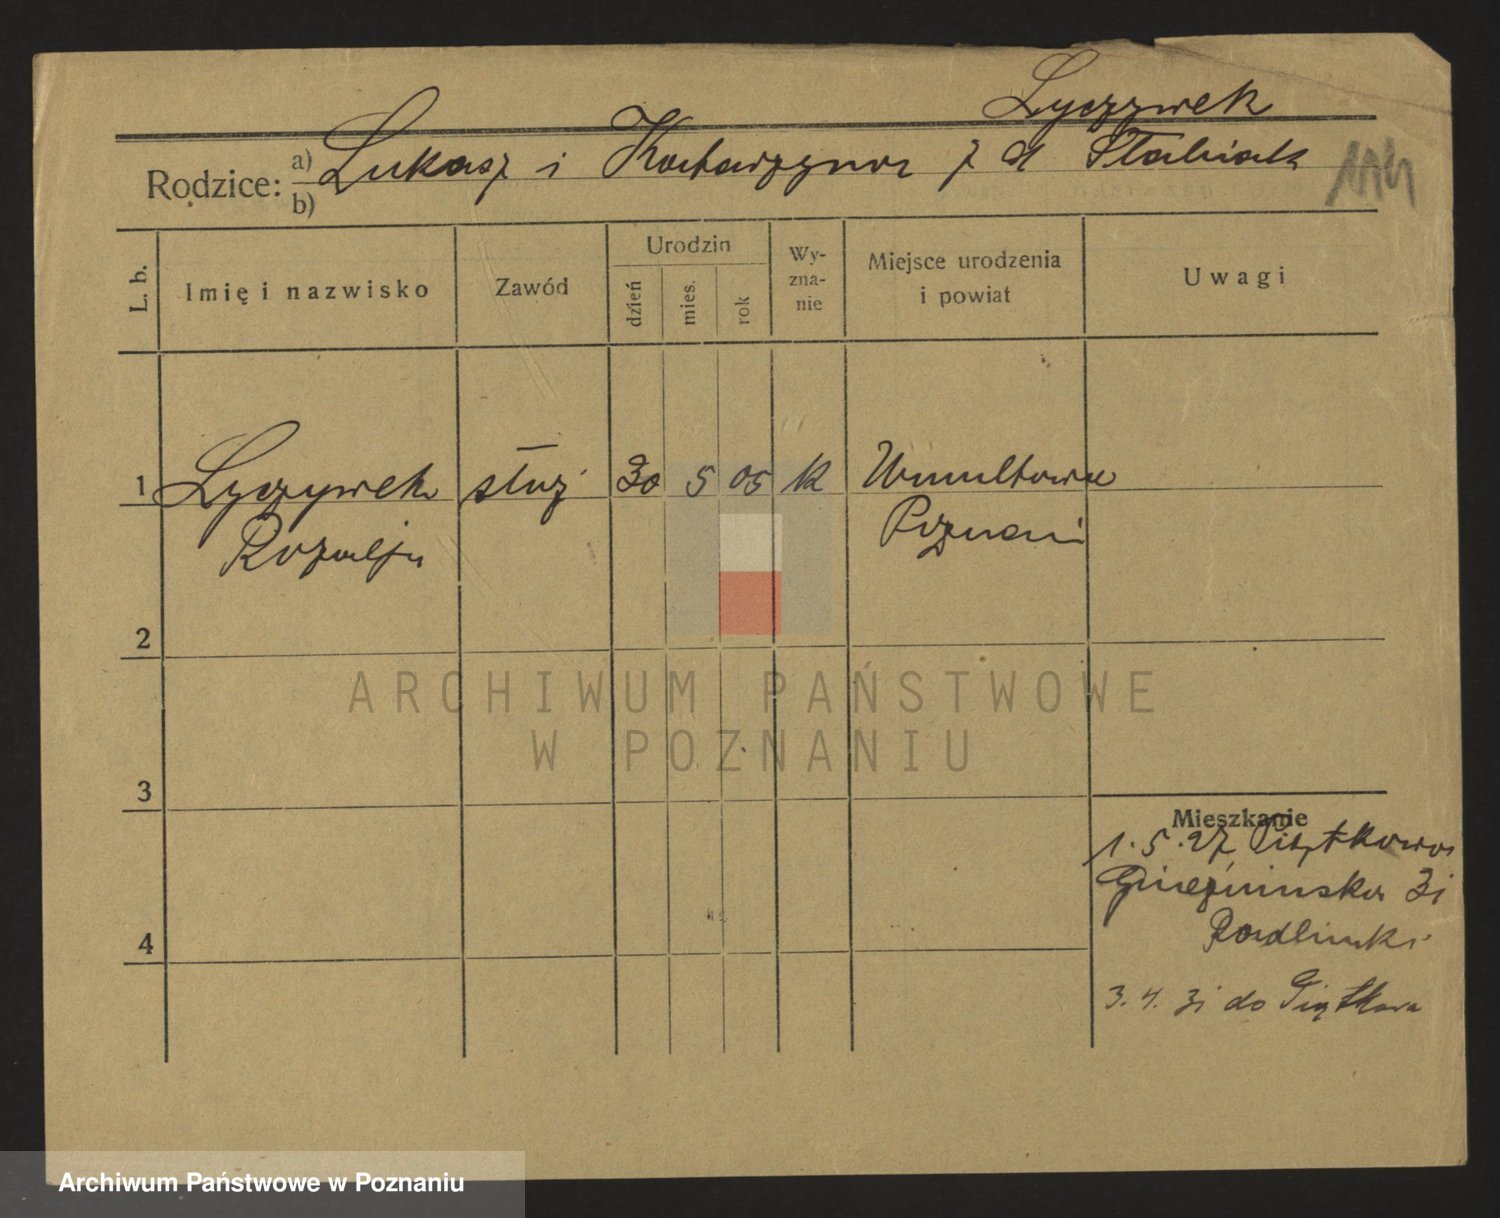 Łyczywek
Rodzice: a) b) Łukasz i Katarzyna z d Stabiak
114
L. b.
Imię i nazwisko
Zawód
Urodzin
dzień
mies.
rok
Wy-
zna-
nie
Miejsce urodzenia
i powiat
Uwagi
1 Łyczywek służ 30 5 05 k Umultowie
Rozalja Poznań
2
ARCHIWUM PAŃSTWOWE
W POZNANIU
3
Mieszkanie
1.5.27 Piątkowo
Gnieźnieńska 31
Radliński
4
3.4.31 do Piątkowa
Archiwum Państwowe w Poznaniu